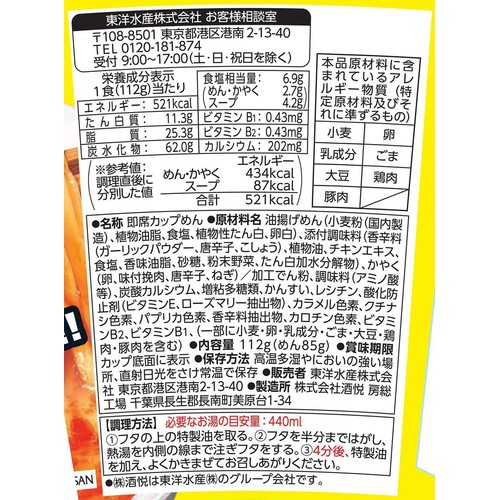 東洋水産株式会社 お客様相談室
〒108-8501 東京都港区港南 2-13-40
TEL 0120-181-874
受付 9:00~17:00(土・日・祝日を除く)
栄養成分表示
1食(112g)当たり
エネルギー 521kcal
たん白質 11.3g
脂質 25.3g
炭水化物 62.0g
食塩相当量: 6.9g
(めん・かやく 2.7g)
スープ 4.2g
ビタミンB1: 0.43mg
ビタミンB2: 0.43mg
カルシウム: 202mg
※参考値:調理直後に分別した値
エネルギー
めん・かやく 434kcal
スープ 87kcal
合計 521kcal
本品原材料に含
まれているアレ
ルギー物質(特
定原材料及びそ
れに準ずるもの)
小麦 卵
乳成分 ごま
大豆 鶏肉
豚肉
●名称 即席カップめん●原材料名 油揚げめん(小麦粉(国内製
造)、植物油脂、食塩、植物性たん白、卵白)、添付調味料(香辛料
(ガーリックパウダー、唐辛子、こしょう)、植物油、チキンエキス、
食塩、香味油脂、砂糖、粉末野菜、たん白加水分解物)、かやく
(卵、味付挽肉、唐辛子、ねぎ)/加工でん粉、調味料(アミノ酸
等)、炭酸カルシウム、増粘多糖類、かんすい、レシチン、酸化防
止剤(ビタミンE、ローズマリー抽出物)、カラメル色素、クチナ
シ色素、パプリカ色素、香辛料抽出物、カロチン色素、ビタミ
ンB2、ビタミンB1、(一部に小麦・卵・乳成分・ごま・大豆・鶏
肉・豚肉を含む)●内容量 112g(めん85g)●賞味期限
カップ底面に表示●保存方法 高温多湿やにおいの強い場
所、直射日光をさけ常温で保存●販売者 東洋水産株式会
社 東京都港区港南2-13-40●製造所 株式会社酒悦 房総
工場 千葉県長生郡長南町美原台1-34
【調理方法】 必要なお湯の目安量:440ml
①フタの上の特製油を取る。②フタを半分まではがし、
熱湯を内側の線まで注ぎフタをする。③4分後、特製油
を加え、よくかきまぜてお召しあがりください。
●㈱酒悦は東洋水産㈱のグループ会社です。
SAN
!